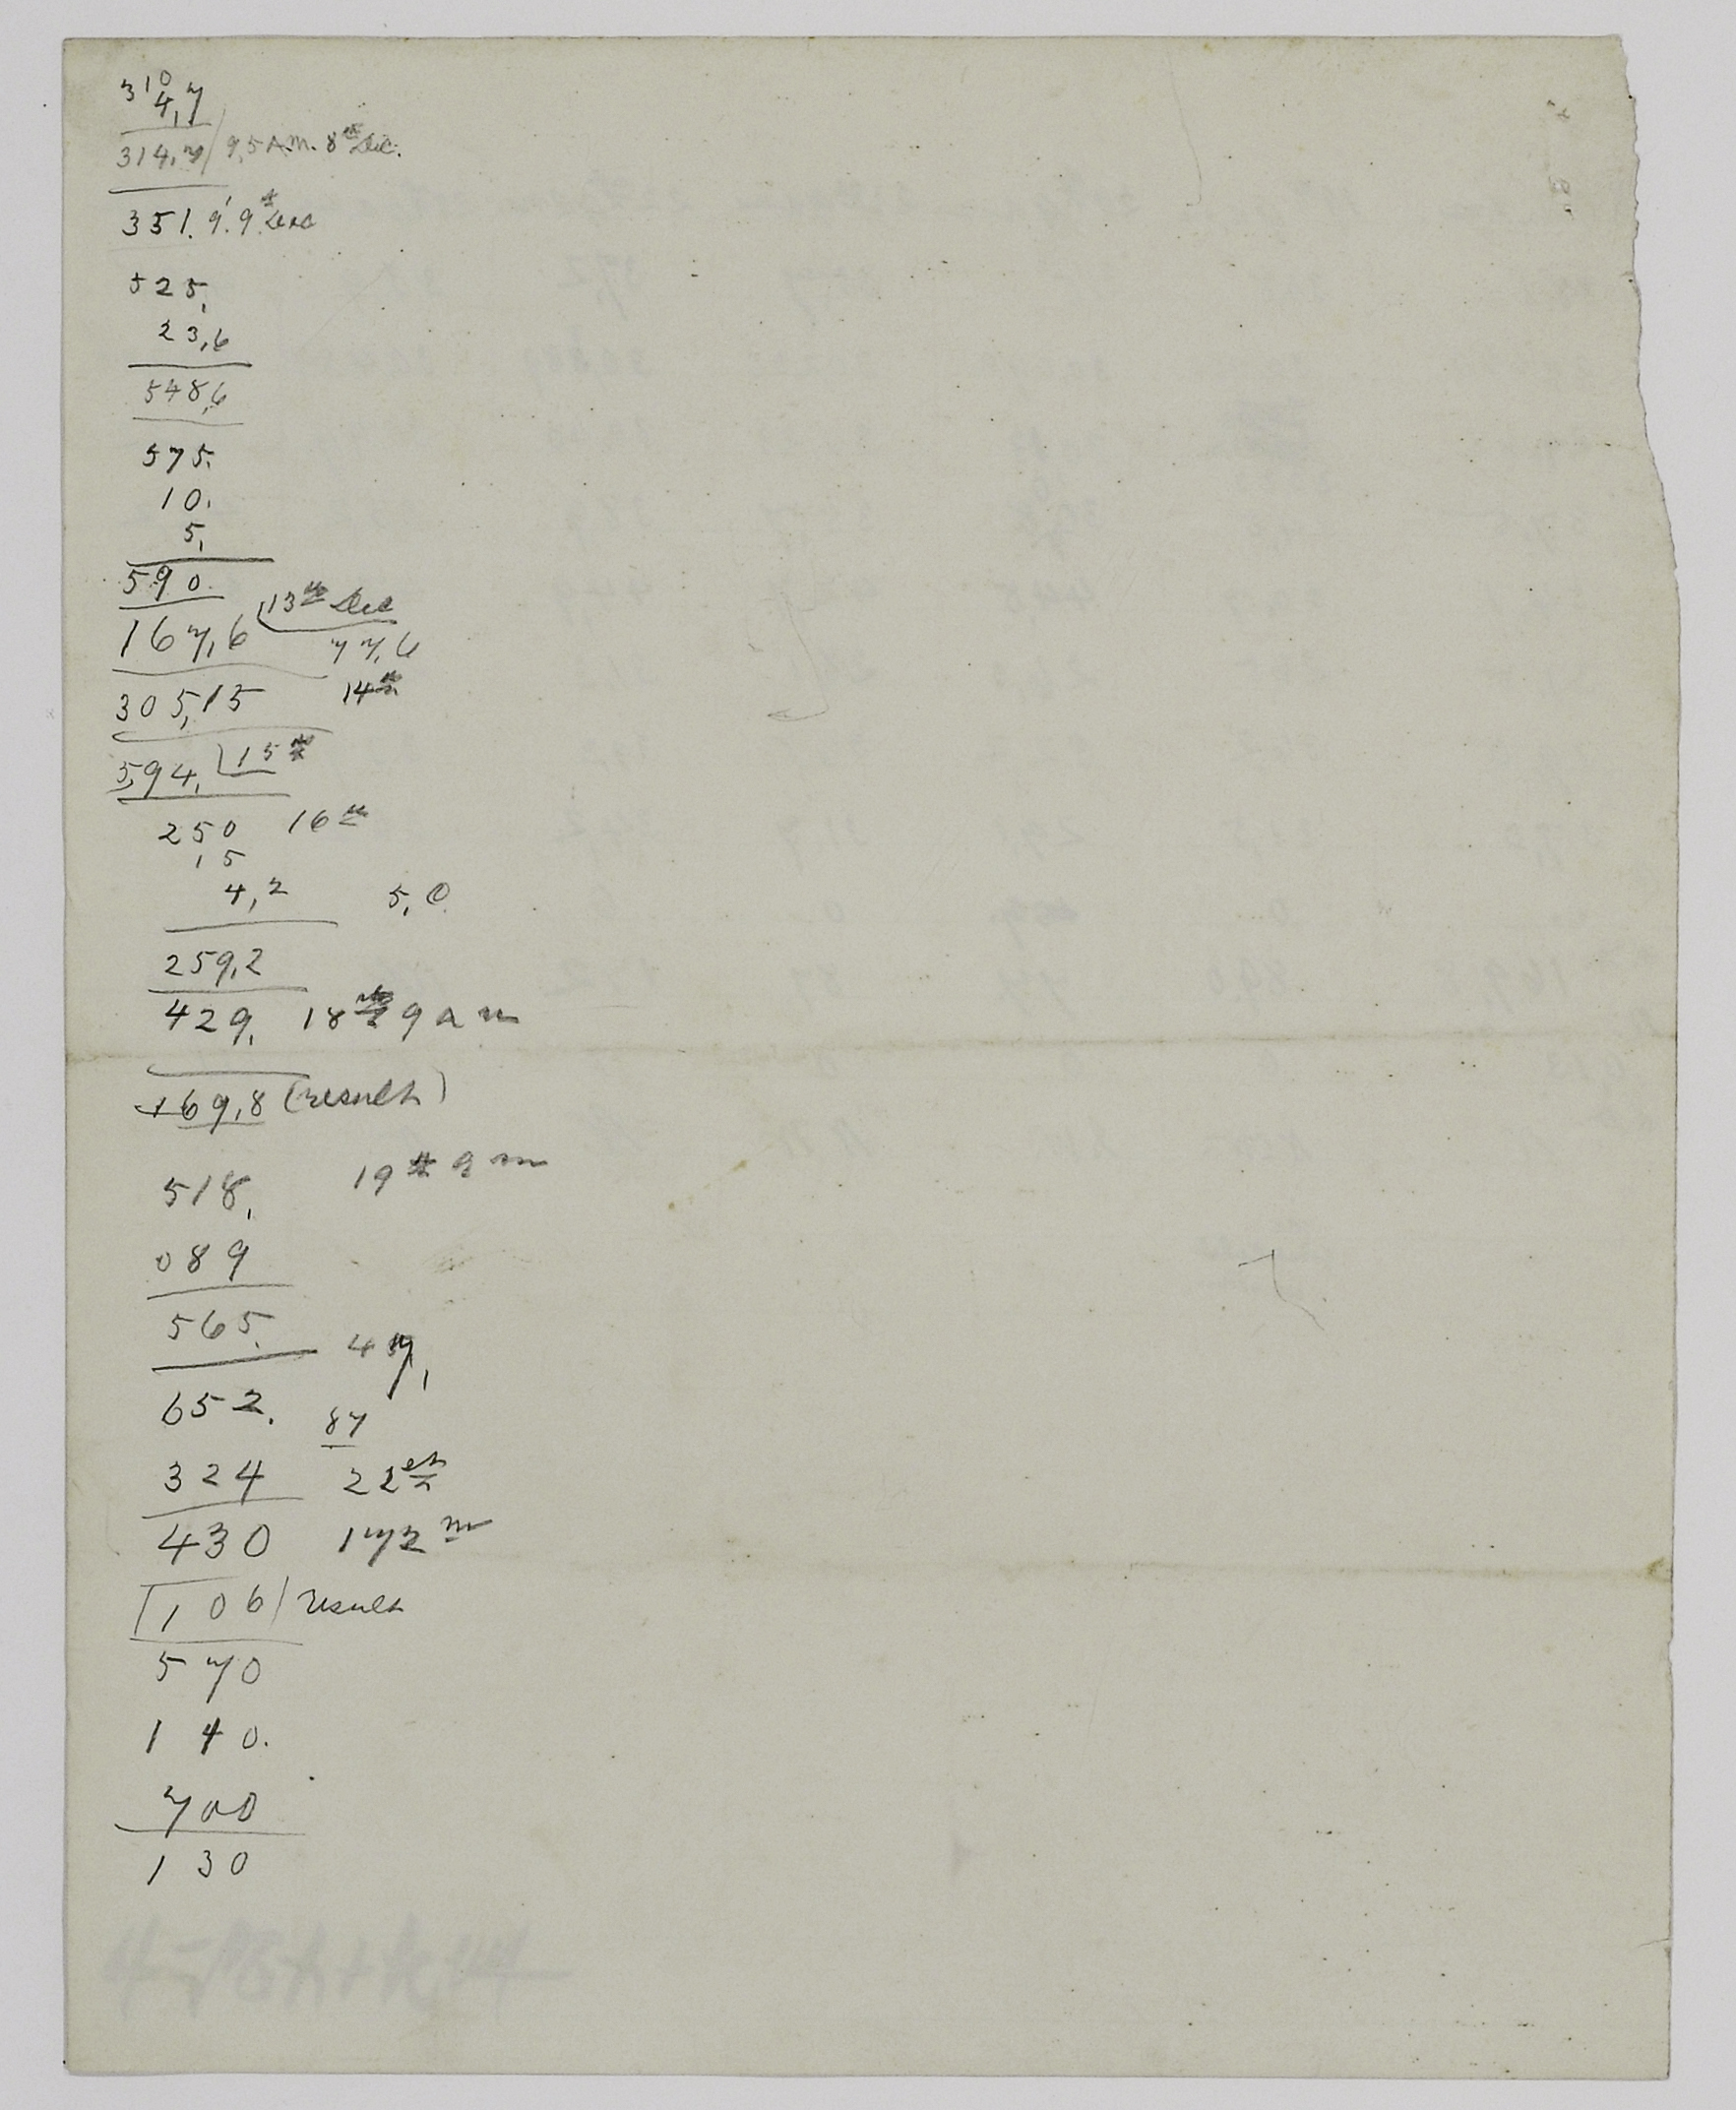 310
4,7
314,7 / 9,5 A.M. 8th Dec.
351. 9'. 9th Dec
525,
23,6
548,6
575.
10.
5,
590.
167,6 13th Dec
77,6
305,15 14th
5,94, 15th
250 16th
,5
4,2 5,0
259,2
429, 18th 9 a m
169,8 (result)
518, 19th 9 m
089
565. 47,
652. 87
324 22
430 172 m
106 / result
570
140.
700
130